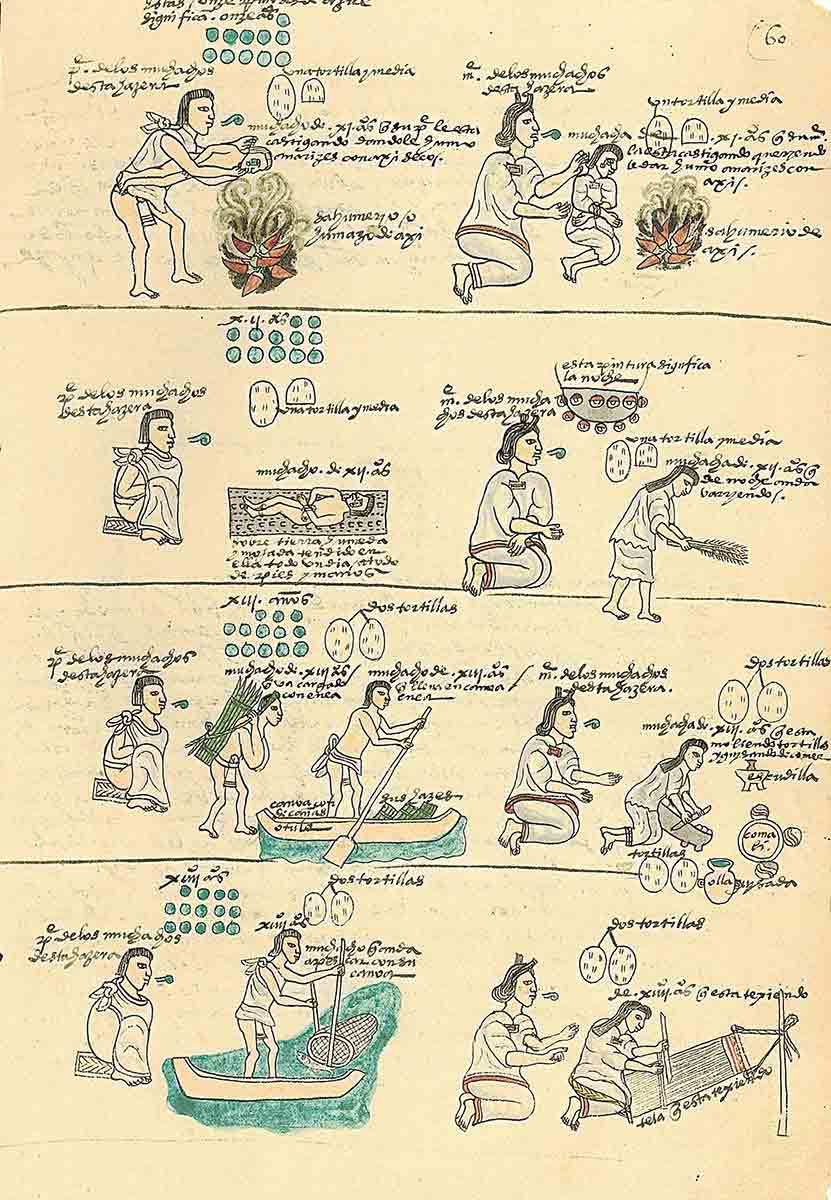 significa. onze años
60
pe. de los muchachos
desta hazera
una tortilla y media
muchacho de .xi. años q̄ su pe. le esta
castigando dandole humo
a narizes con axi secos.
sahumerio o
humazo de axi
me. de los muchachos
desta hazera
un tortilla y media
muchacha de .xi. años q̄ su me.
la esta castigando queriendo
le dar humo a narizes con
axi.
sahumerio de
axi.
x.ii. años
pe. de los muchachos
desta hazera
una tortilla y media
muchacho. de xii. años
sobre tierra umeda
y mojada tendido en
ella todo un dia atado
de pies y manos
esta pintura significa
la noche
me. de los mucha
chos desta hazera
una tortilla y media
muchacha de .xii. años q̄
de noche anda
varriendo.
xiii. años
dos tortillas
pe. de los muchachos
desta hazera
muchacho de .xiii. años
q̄ va cargado
con enea
muchacho de .xiii. años
q̄ lleva en canoa
enea
canoa con
de cañas
o tule
sus hazes
me. de los muchachos
desta hazera.
dos tortillas
muchacha de .xiii. años q̄ esta
moliendo tortillas
y guisando de comer
escudilla
comali.
tortillas
olla guisada
xiiii años
dos tortillas
pe. de los muchachos
desta hazera
xiiii. años
muchacho q̄ anda
a pescar con su
canoa
dos tortillas
de .xiiii. años q̄ esta texiendo
tela q̄ esta texiendo